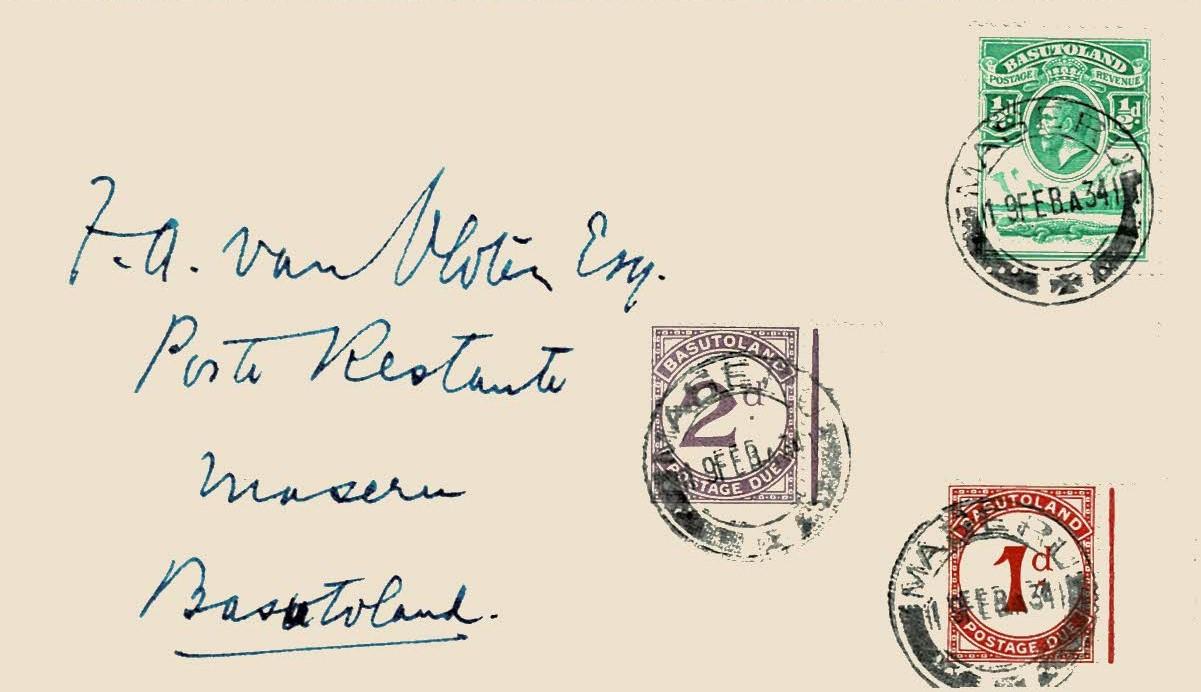 BASUTOLAND
POSTAGE REVENUE
½d. ½d.
MASERU
19 FEB.A 34
F. A. van Vloten Esq.
Poste Restante
Maseru
Basutoland.
BASUTOLAND
2d.
POSTAGE DUE
MASERU
19 FEB.A 34
BASUTOLAND
1d.
POSTAGE DUE
MASERU
19 FEB.A 34